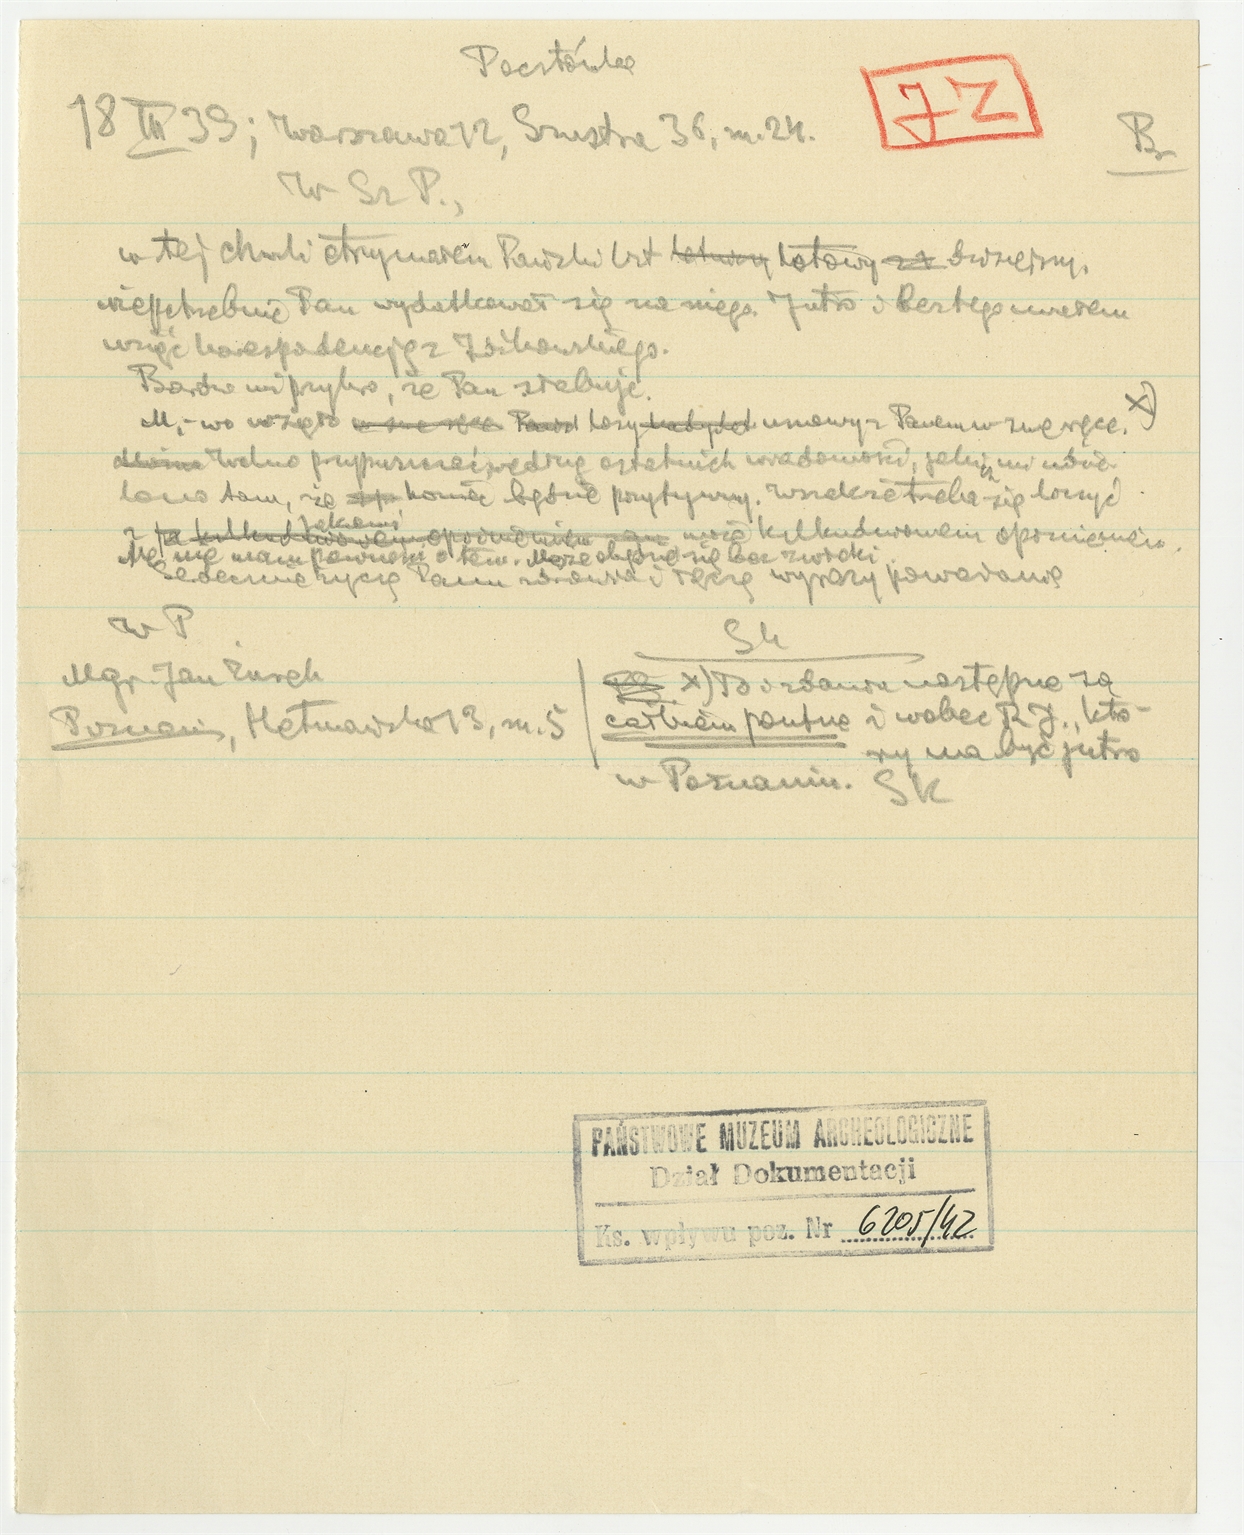 Pocztówka
JZ
18 III 39; Warszawa 12, Szustra 36, m. 24.
B
W Sz P.,
w tej chwili otrzymałem Pański list lotowy dzisiejszy.
niepotrzebnie Pan wydatkował się na niego. Jutro i bez tego miałem
wziąć korespondencję z Żóikowskiego.
Bardzo mi przykro, że Pan słabuje.
M.-wo wzięło losy umowy z Panem w swe ręce. x)
Wolno przypuszczać, według ostatnich wiadomości, jakich mi udzie-
lono tam, że koniec będzie pozytywny. Wszakże trzeba się liczyć
z jakemś może kilkudniowem opóźnieniem.
Ale nie mam pewności o tem. Może obędzie się bez zwłoki.
Serdecznie życzę Panu zdrowia i łączę wyrazy poważania
SK
W P
Mgr. Jan Żurek
Poznań, Hetmańska 13, m. 5
x) To i zdania następne są
całkiem poufne i wobec R. J., któ-
ry ma być jutro
w Poznaniu. SK
PAŃSTWOWE MUZEUM ARCHEOLOGICZNE
Dział Dokumentacji
Ks. wpływu poz. Nr 6205/42